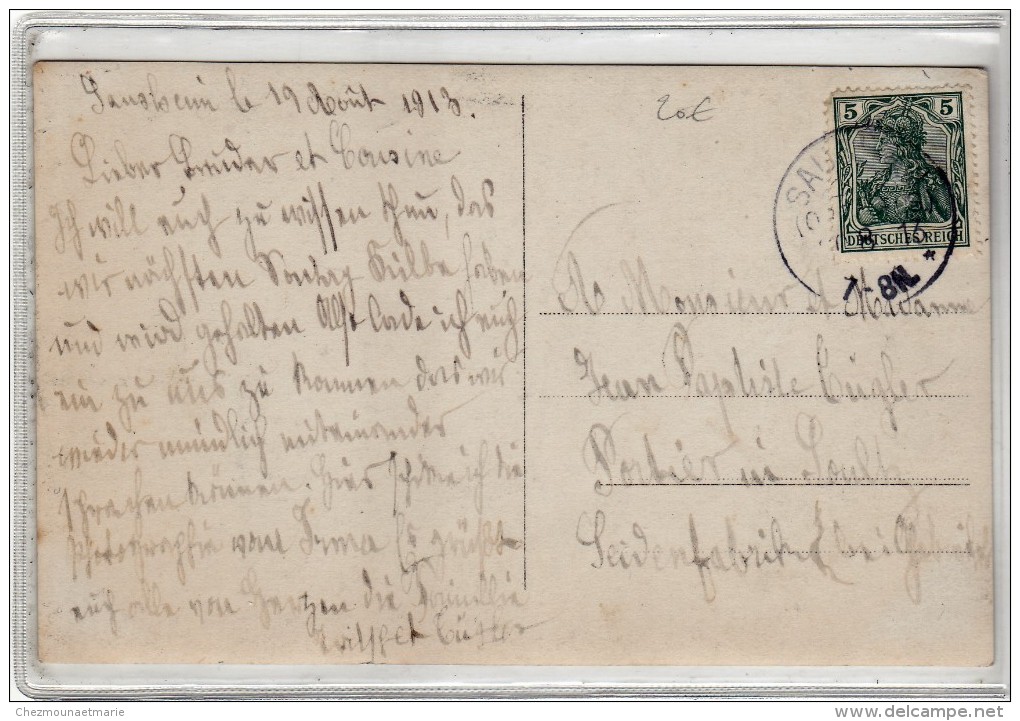 Sausheim le 19 Août 1913.
Lieber Bruder et Cousine
Ich will euch zu wissen thun, das
wir nächsten Sontag Kilbe haben
und wird gehalten lade ich euch
ein zu uns zu kommen das wir
wieder mündlich miteinander
sprechen können. Hier schick ich die
Photographie von Irma Es grüßt
euch alle von Hertzen die Familie
et
20€
5 5
DEUTSCHES REICH
SAU
8 13
7-8N.
A Monsieur et Madame
Jean Baptiste
Portier in Soultz
Seidenfabrik bei
Chezmounaetmarie
delcampe.net